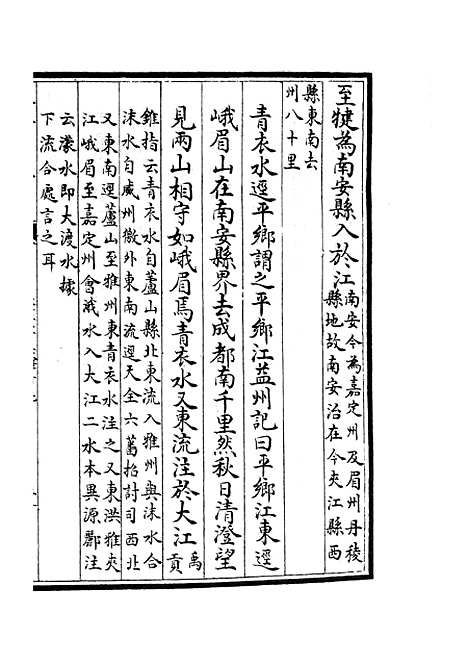 至犍為南安縣入於江南安今為嘉定州及眉州丹稜
縣地故南安治在今夾江縣西
縣東南去
州八十里
青衣水逕平鄉謂之平鄉江益州記曰平鄉江東逕
峨眉山在南安縣界去成都南千里然秋日清澄望
見兩山相守如峨眉焉青衣水又東流注於大江禹
貢
錐指云青衣水自蘆山縣北東流入雅州與沬水合
沬水自威州徼外東南流逕天全六蕃招討司西北
又東南逕蘆山至雅州東青衣水注之又東洪雅夾
江峨眉至嘉定州會渽水入大江二水本異源酈注
云濛水即大渡水據
下流合處言之耳